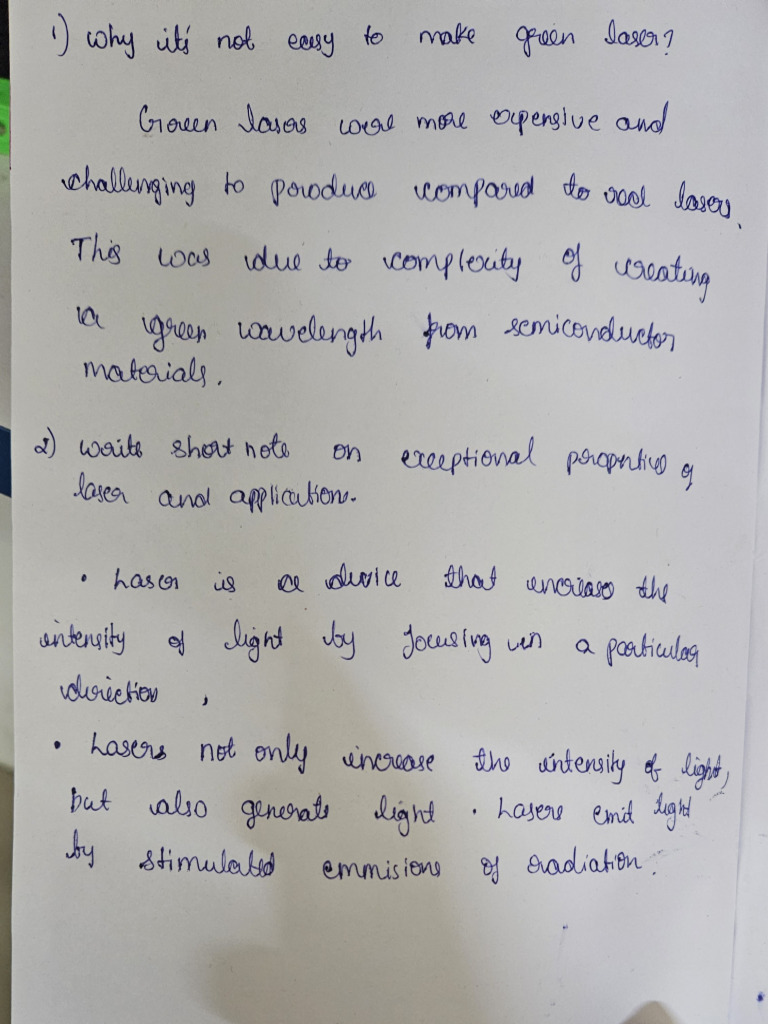 1) Why it's not easy to make green laser?
Green lasers were more expensive and
challenging to produce compared to red lasers.
This was due to complexity of creating
a green wavelength from semiconductor
materials.
2) write short note on exceptional properties of
laser and application.
• Laser is a device that increase the
intensity of light by focusing in a particular
direction.
• Lasers not only increase the intensity of light,
but also generate light. Lasers emit light
by stimulated emmisions of radiation.